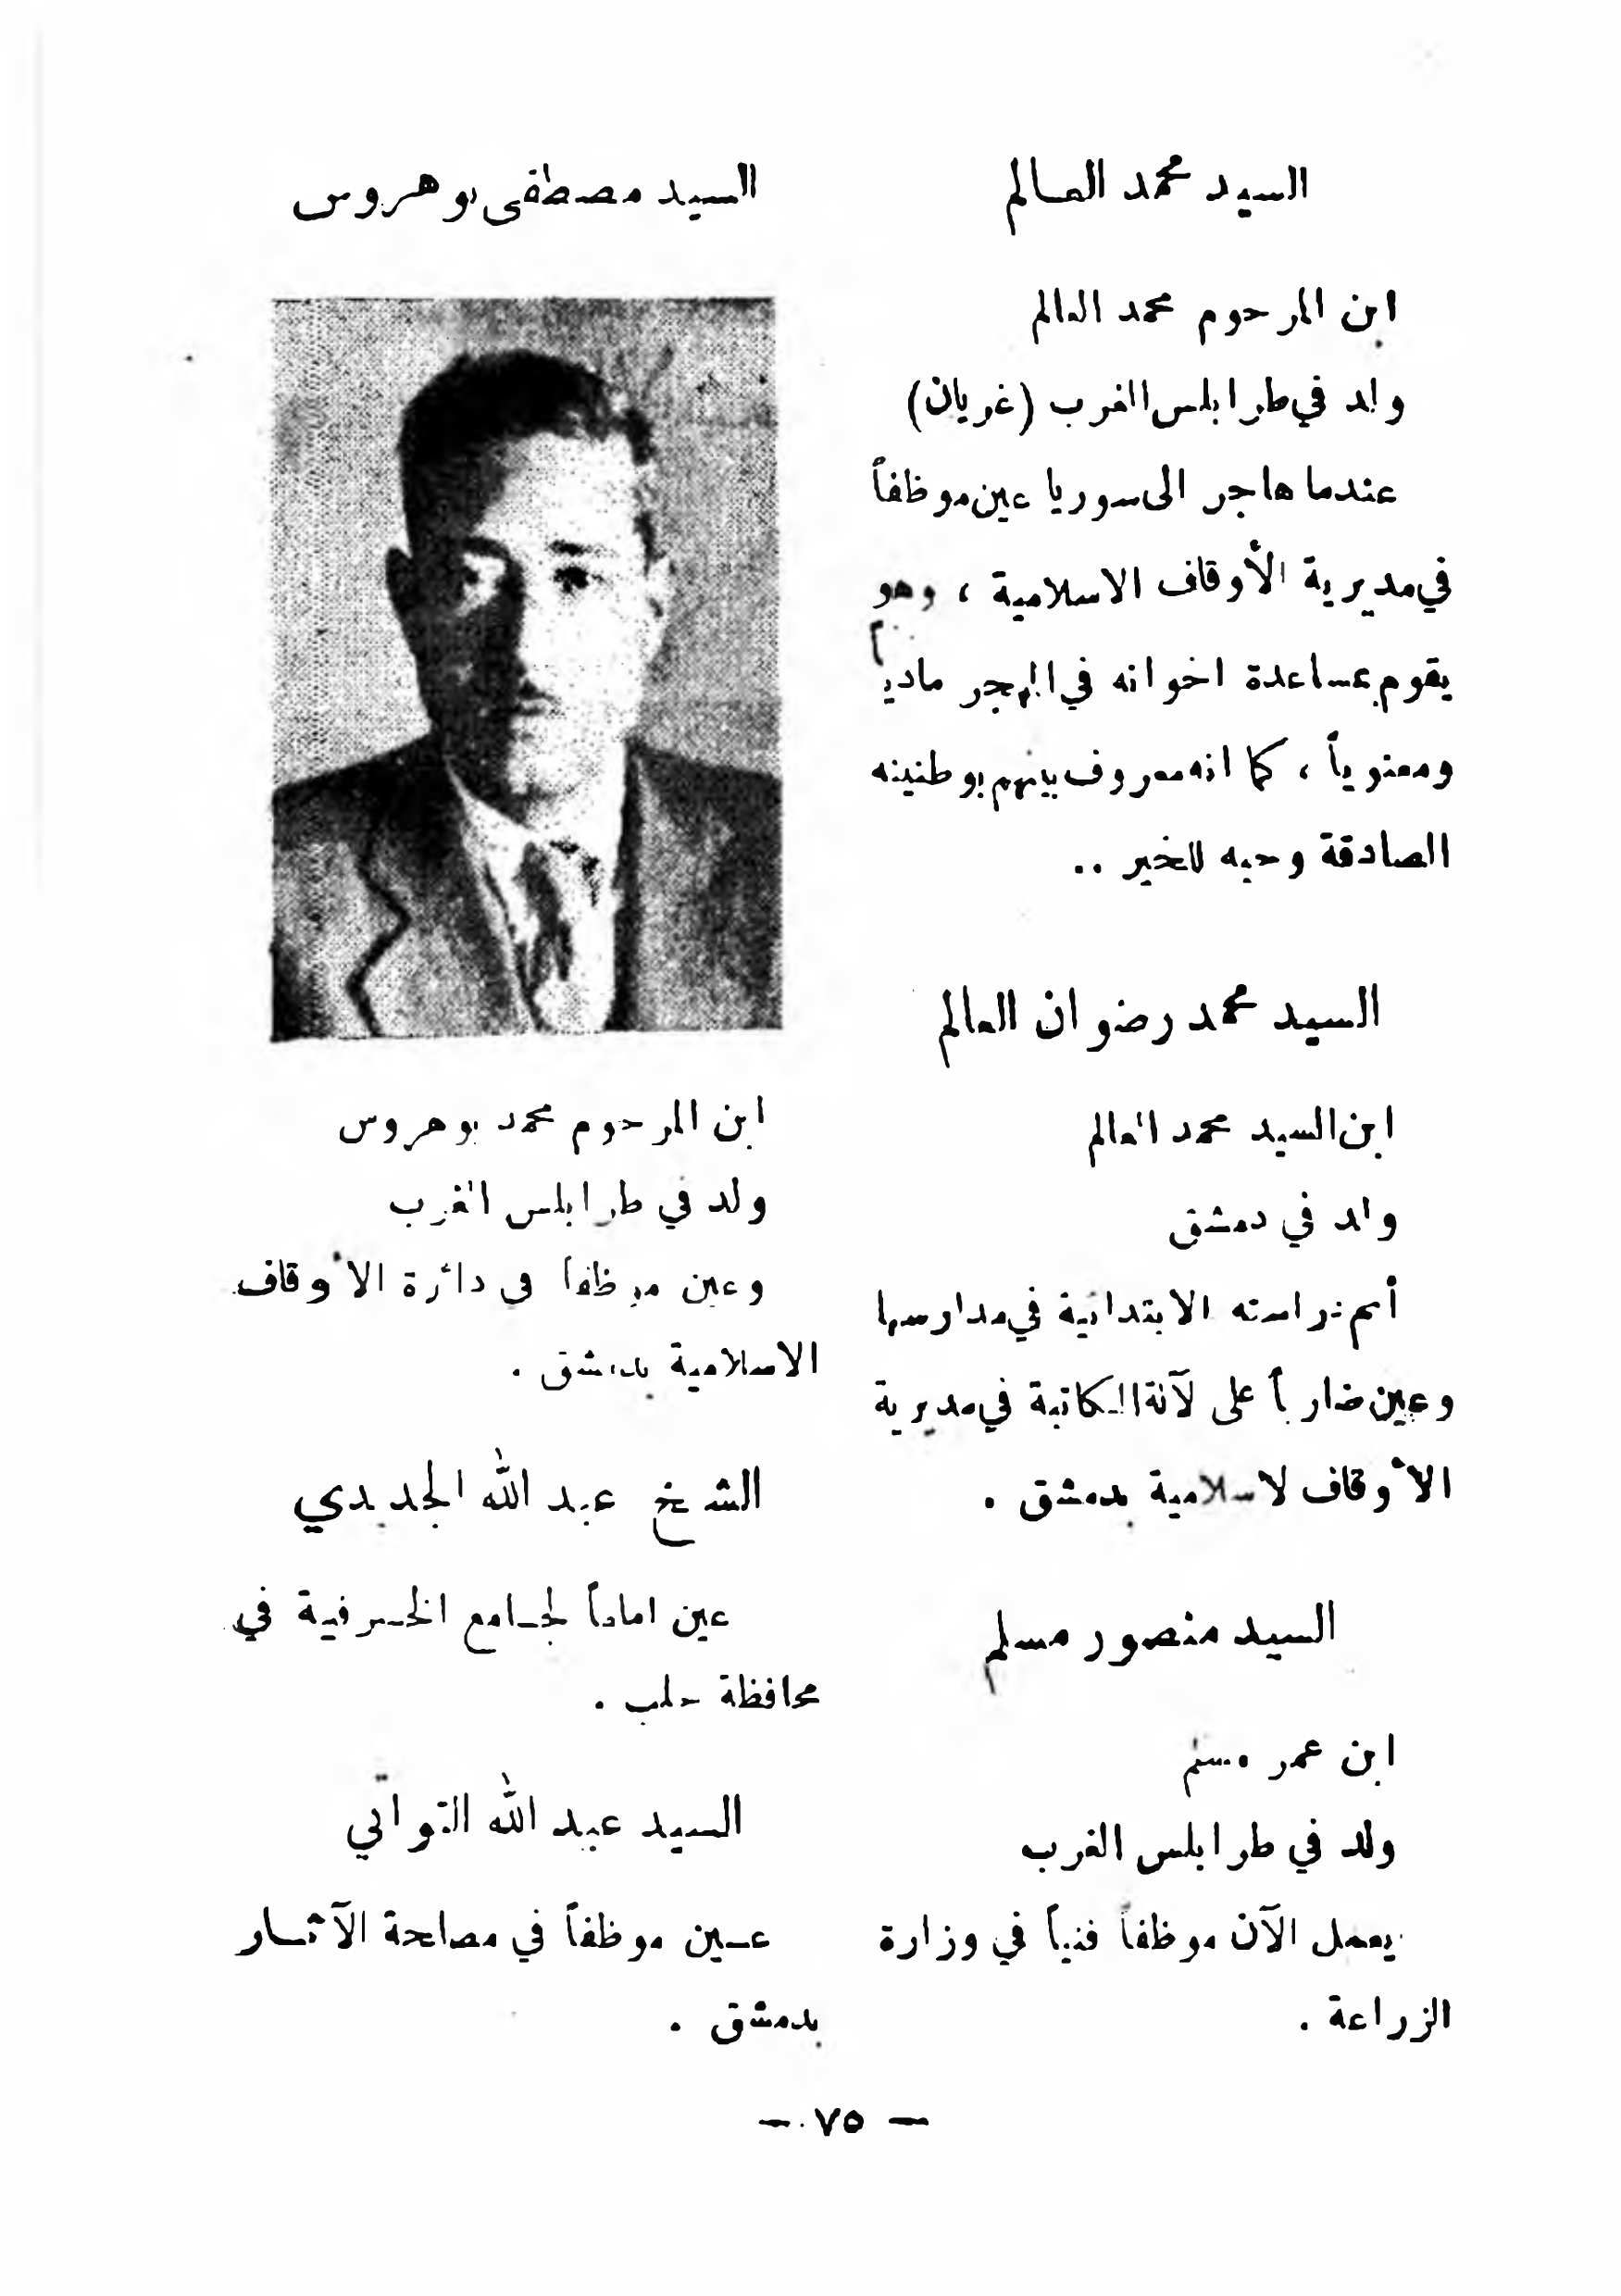 السيد محمد العالم
ابن المرحوم محمد العالم
ولد في طرابلس الغرب (غريان)
عندما هاجر الى سوريا عين موظفاً
في مديرية الأوقاف الاسلامية ، وهو
يقوم بمساعدة اخوانه في المهجر مادياً
ومعنوياً ، كما انه معروف بينهم بوطنيته
الصادقة وحبه للخير ..
السيد محمد رضوان العالم
ابن السيد محمد العالم
ولد في دمشق
أتم دراسته الابتدائية في مدارسها
وعين ضارباً على لآلة الكاتبة في مديرية
الأوقاف لاسلامية بدمشق .
السيد منصور مسلم
ابن عمر مسلم
ولد في طرابلس الغرب
يعمل الآن موظفاً فنياً في وزارة
الزراعة .
السيد مصطفى بوهروس
ابن المرحوم محمد بوهروس
ولد في طرابلس الغرب
وعين موظفاً في دائرة الأوقاف
الاسلامية بدمشق .
الشيخ عبد الله الجديدي
عين اماماً لجامع الخسرفية في
محافظة حلب .
السيد عبد الله التواتي
عين موظفاً في مصلحة الآثار
بدمشق .
— ٧٥ —